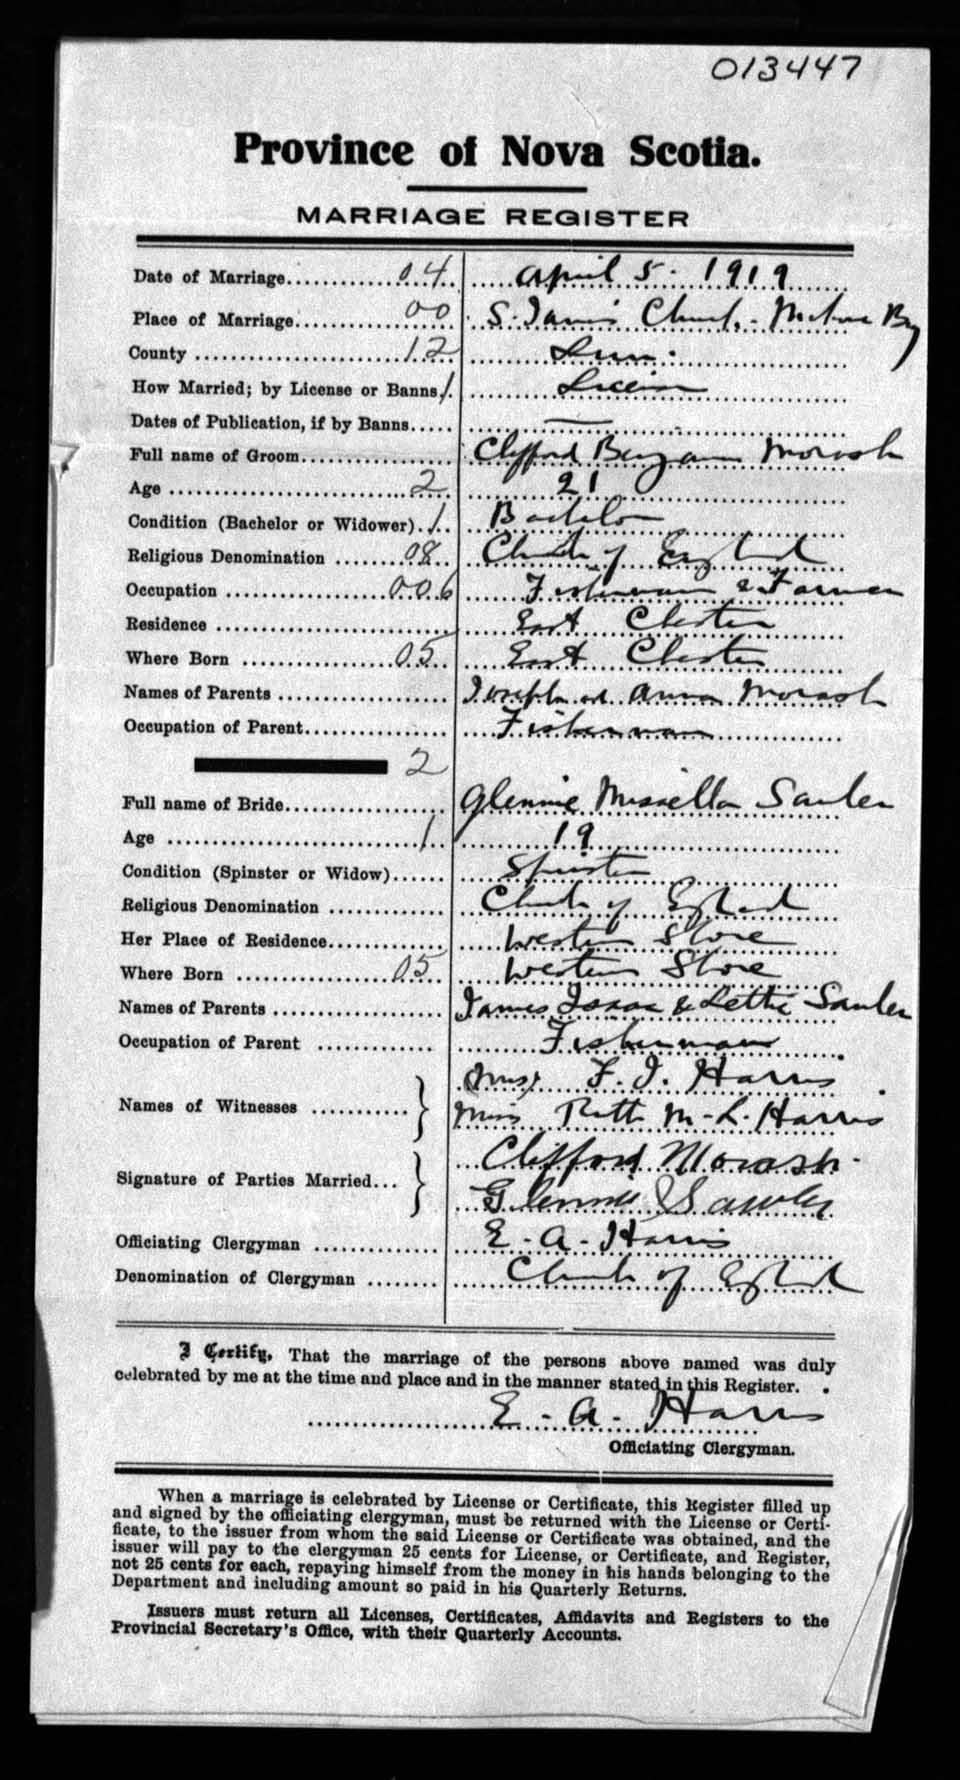 013447
Province of Nova Scotia.
MARRIAGE REGISTER
Date of Marriage 04 April 5. 1919
Place of Marriage 00 S. James Church, - Mahone Bay
County 12 Lun:
How Married; by License or Banns 1. License
Dates of Publication, if by Banns —
Full name of Groom Clifford Benjamin Morash
Age 2 21
Condition (Bachelor or Widower) 1 Bachelor
Religious Denomination 08 Church of England
Occupation 006 Fisherman & Farmer
Residence East Chester
Where Born 05 East Chester
Names of Parents Joseph and Anna Morash
Occupation of Parent Fisherman
2
Full name of Bride Glennie Sauler
Age 1 19
Condition (Spinster or Widow) Spinster
Religious Denomination Church of England
Her Place of Residence Western Shore
Where Born 05 Western Shore
Names of Parents James Isaac & Lettie Sauler
Occupation of Parent Fisherman
Names of Witnesses F. I. Harris
Miss Ruth M. L. Harris
Signature of Parties Married Clifford Morash.
Glennie Sawler
Officiating Clergyman E. A. Harris
Denomination of Clergyman Church of England
I Certify, That the marriage of the persons above named was duly
celebrated by me at the time and place and in the manner stated in this Register.
E. A. Harris
Officiating Clergyman.
When a marriage is celebrated by License or Certificate, this Register filled up
and signed by the officiating clergyman, must be returned with the License or Certi-
ficate, to the issuer from whom the said License or Certificate was obtained, and the
issuer will pay to the clergyman 25 cents for License, or Certificate, and Register,
not 25 cents for each, repaying himself from the money in his hands belonging to the
Department and including amount so paid in his Quarterly Returns.
Issuers must return all Licenses, Certificates, Affidavits and Registers to the
Provincial Secretary's Office, with their Quarterly Accounts.